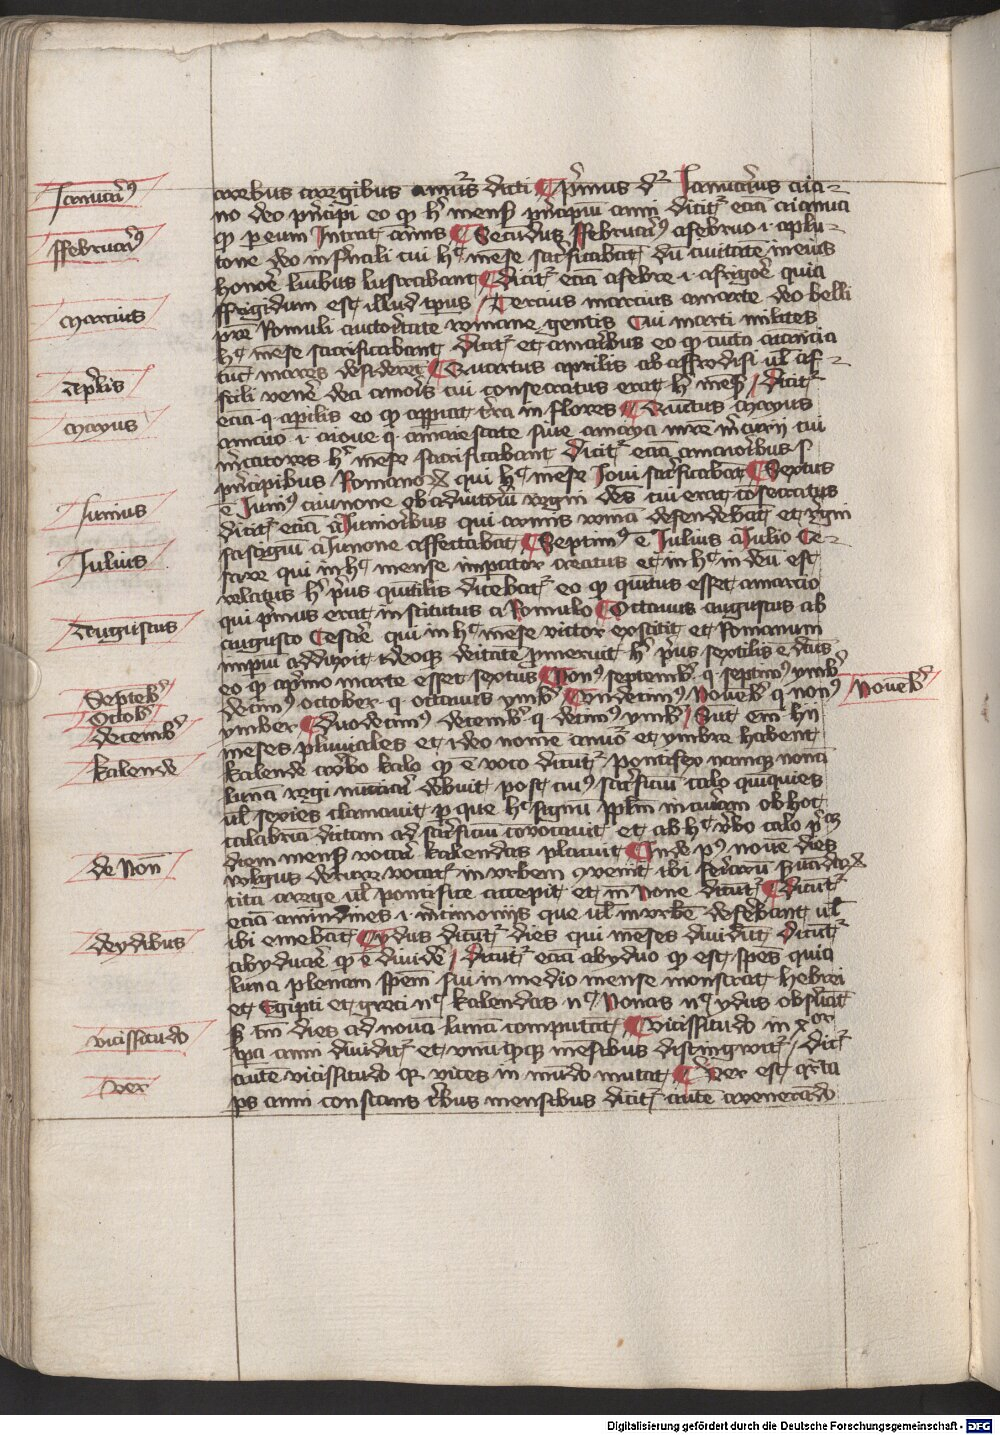 Januari⁹
ffebruari⁹
marcius
Ap̄lis
mayus
Junius
Julius
Augustus
Septēb̄
Octob̄
decemb̄
kalende
de Non̄
de ydibus
vicissitudo
ver
Noueb̄
a rebus a regibus dicti Primus d² Januarius a ia-
no deo pⁱncipi eo ꝙ hⁱ mens̄ pⁱncipiū anni Dicit² eciā a ianua
ꝙ per eum Intrat annus Secūdus ffebruari⁹ a februo .i. a plu-
tone deo infernali cui hᶜ mēse sacⁱficabāt, dū ciuitatē in eius
honorē lustrabant Dicit² eciā a febre .i. a frigorē quia
ffrigidum est illud tp̄us / Tercius marcius a marte deo belli
pr̄e Romuli auctore romane gentis Cui marti milites
hᶜ mēse sacrificabant, Dicit² et a maribus eo ꝙ cūcta aīancia
tūc mares desideret Quartus aprilis ab affrodisi ul̄ af-
consecratus erat hⁱ mēs̄ / Dicit²
eciā q. apilis eo ꝙ appiat tr̄ra in flores Quintus Mayus
a maio .i. a ioue q. a maiestate siue a maya mr̄e mercurij cui
mercatores hᶜ mēse sacrificabant Dicit² eciā a maioribus .s.
pⁱncipibus Romanoꝝ qui hᶜ mēse Ioui sacⁱficabāt Sextus
ē Juni⁹ a iunone ob adiutoriū regni cui erat cōsecratus
dicit² eciā a Iunioribus qui armis romā defendebāt et regni
fastigiū a Iunone affectabāt Septim⁹ ē Iulius a Iulio Ce-
sare qui in hᶜ mense impator creatus et in hᶜ in deū est
relatus hⁱ pⁱus quintilis dicebat² eo ꝙ quintus esset a marcio
qui pⁱmus erat institutus a Romulo Octauus augustus ab
augusto Cesare qui in hᶜ mēse victor exstitit et Romanum
impiū adduxit ideoꝙ deitatē pmeruit hⁱ pⁱus sextilis ē dictus
eo ꝙ a pⁱmo marte esset sextus Non⁹ septemb̄ q. septim⁹ ymb̄
decim⁹ october q. octauus ymb̄ Vndecim⁹ Noueb̄ q. non⁹
ymber Duodecim⁹ decemb̄ q. decim⁹ ymb̄ / Sūt em̄ hij
mēses pluuiales et ideo nomē et ymbre habent
kalende a verbo kalo ꝙ ē voco dicūt² Pontifex namꝙ noua
luna regi nūciari debuit post cui⁹ sacⁱficiū calo quinquies
ul̄ sexies clamauit p que hᶜ signū pplm̄ in curiam ob hoc
calabria dictam ad sacⁱficiū cōuocauit et ab hᶜ verbo calo
diem mens̄ vocari kalendas placuit Inde p⁹ nouē dies
vulgus in vrbem ꝯuenit ibi feriarū
a rege ul̄ pontifice accepit et in none dicūt² Dicūt²
eciā a nundines .i. mercimonijs que ul̄ in vrbē deferebant ul̄
ibi emebāt Ydus dicūt² dies qui mēses diuidūt Dicūt²
ab yduare ꝙ ē diuidē / Dicūt² eciā ab yduo ꝙ est spēs quia
luna plenam spēm sui in medio mense monstrat Hebrei
et Egipti et greci nᶜ kalendas nᶜ Nonas nᶜ ydus obseruāt
s̄ tm̄ dies ad nouā lunā computāt Vicissitudo in
tp̄a anni diuidit² et vnūqdꝙ mēsibus distingwit² / dicit²
autē vicissitudo ꝙ vices in mūdo mutat Ver est
ps anni constans tⁱbus mensibus dicit² autē a venerādo
Digitalisierung gefördert durch die Deutsche Forschungsgemeinschaft - DFG